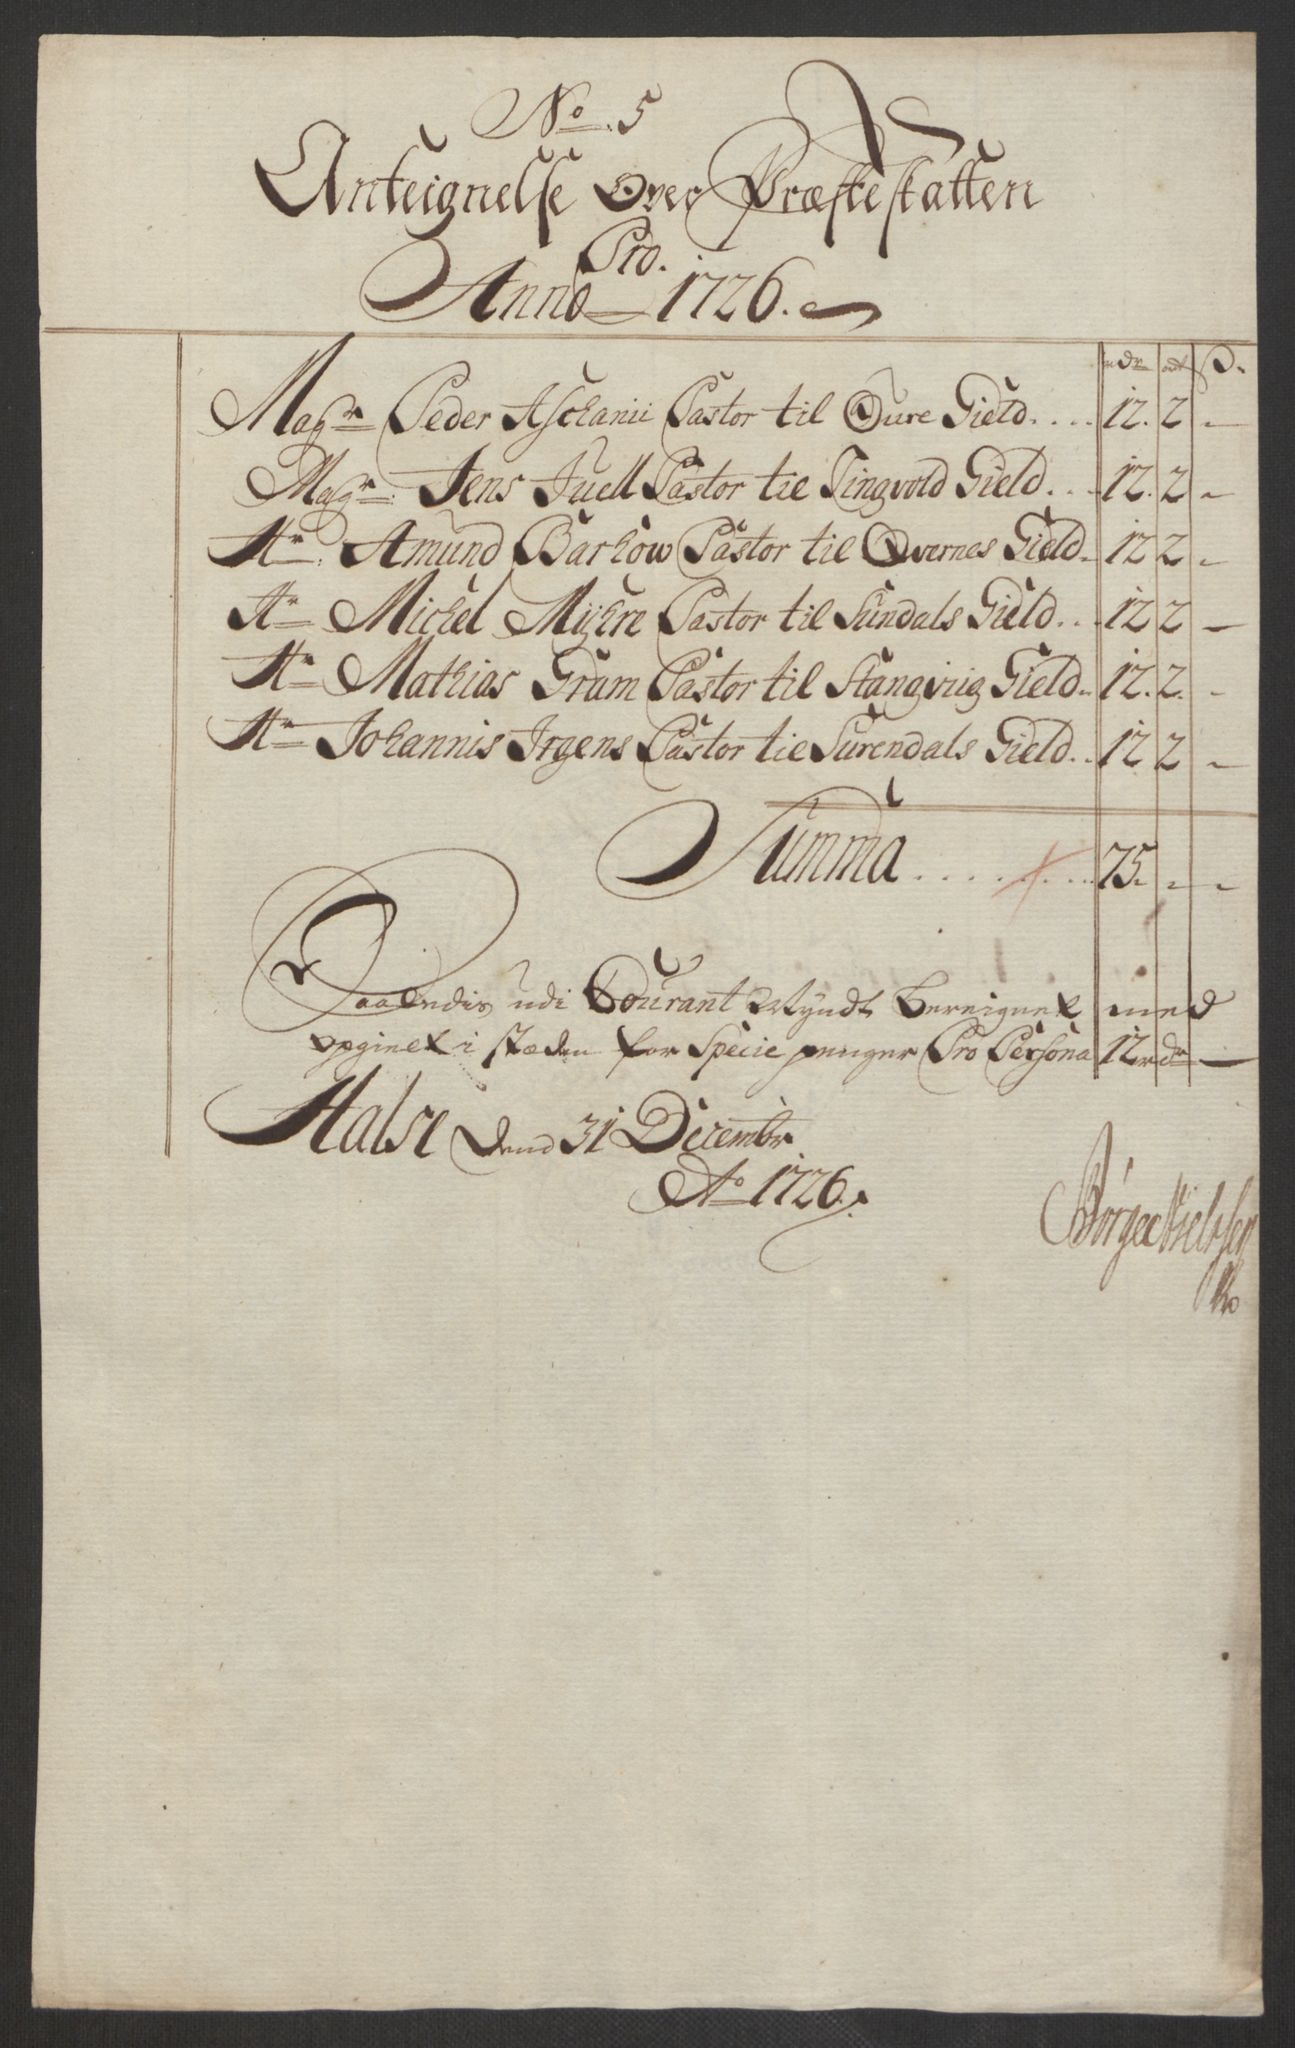 No. 5
Anteignelse Over Præsteskatten
Pro.
Anno 1726.
rdr ort ß.
Magr. Peder Aschanii Pastor til Oure Gield.... 12. 2 -
Magr. Jens Juell Pastor til Tingvold Gield... 12. 2 -
Hr. Amund Barhow Pastor til Qvernes Gield. 12 2 -
Hr. Michel Myhre Pastor til Sundals Gield... 12 2 -
Hr. Mathias Gram Pastor til Stangviig Gield. 12. 2. -
Hr. Johannis Irgens Pastor til Surendals Gield.. 12 2 -
Summa ....... 75. - -
udi Courant Myndt Bereignet med
i stæden for Specie penger Pro Persona 12 rdr -
Halse dend 31 Decembr
Ao 1726.
Børge Nielssen